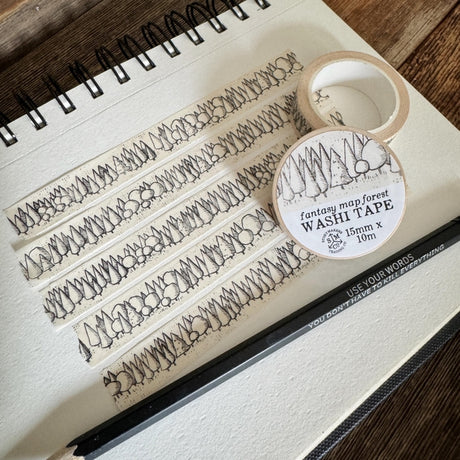 fantasy map forest
WASHI TAPE
15mm x
10m
USE YOUR WORDS
YOU DON'T HAVE TO KILL EVERYTHING